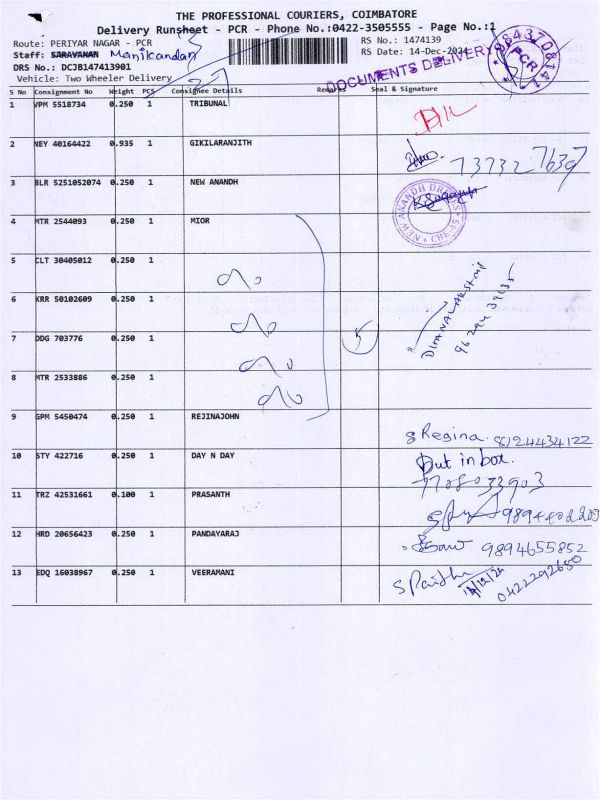 THE PROFESSIONAL COURIERS, COIMBATORE
Delivery Runsheet - PCR - Phone No.:0422-3505555 - Page No.:1
Route: PERIYAR NAGAR - PCR
RS No.: 1474139
Staff: SARAVANAN Manikandan
RS Date: 14-Dec-2024
DRS No.: DCJB147413901
DOCUMENTS DELIVERY
9843708141
PCR
Vehicle: Two Wheeler Delivery
S No Consignment No Weight PCS Consignee Details Remarks Seal & Signature
1 VPM 5518734 0.250 1 TRIBUNAL
2 NEY 40164422 0.935 1 GIKILARANJITH
73732 7639
3 BLR 5251052074 0.250 1 NEW ANANDH
4 MTR 2544093 0.250 1 MIOR
5 CLT 30405012 0.250 1
6 KRR 50102609 0.250 1
7 DDG 703776 0.250 1
5
DHANALAKSHMI
8 MTR 2533886 0.250 1
9 GPM 5450474 0.250 1 REJINAJOHN
Regina. 8124434122
10 STY 422716 0.250 1 DAY N DAY
Put in box.
7708033903
11 TRZ 42531661 0.100 1 PRASANTH
12 HRD 20656423 0.250 1 PANDAYARAJ
9894655852
13 EDQ 16038967 0.250 1 VEERAMANI
14/12/24
0422292680